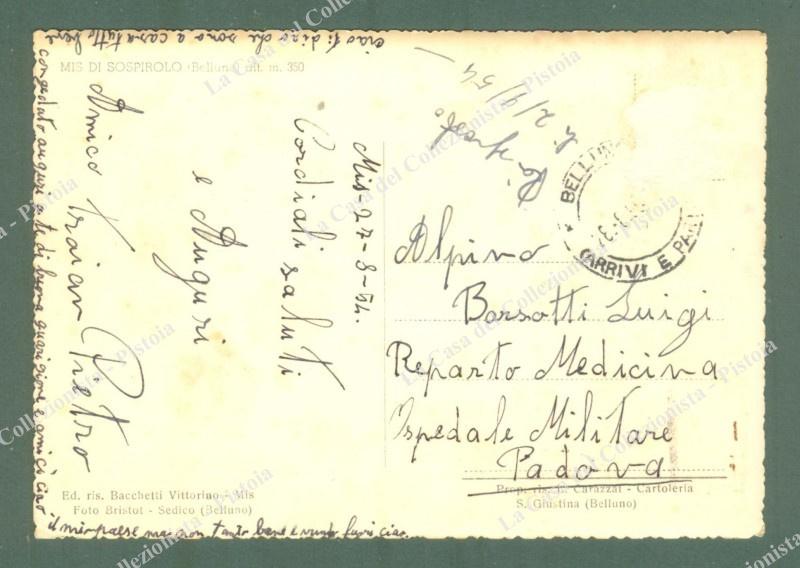 MIS DI SOSPIROLO (Belluno) alt. m. 350
Mis-27-8-54.
Cordiali saluti
e Auguri
Amico Traian Pietro
ciao ti dico che sono a casa tutto bene
congedato auguri a te di buona guarigione e amici ciao
il mio paese ma non tanto bene e
ciao
li 2/9/54-
BELLUNO
ARRIVI E PAR
Alpino
Barsotti Luigi
Reparto Medicina
Ospedale Militare
Padova
Ed. ris. Bacchetti Vittorino - Mis
Foto Bristot - Sedico (Belluno)
Prop. ris. Carazzai - Cartoleria
S. Giustina (Belluno)
La Casa del Collezionista - Pistoia